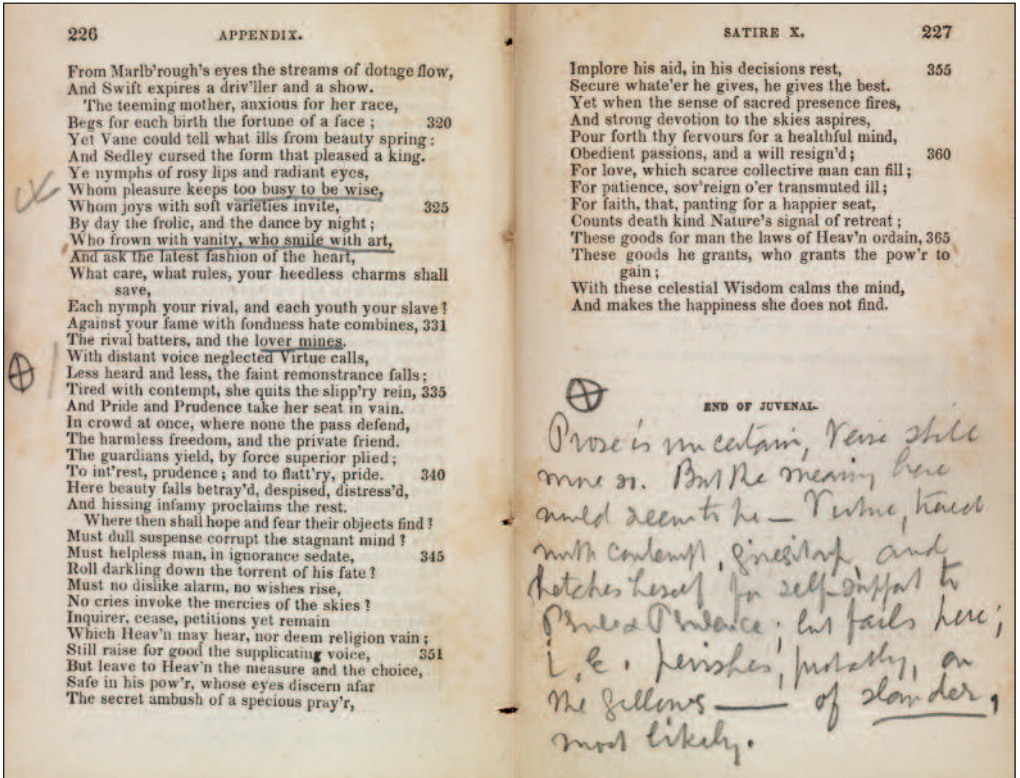 226
APPENDIX.
From Marlb'rough's eyes the streams of dotage flow,
And Swift expires a driv'ller and a show.
The teeming mother, anxious for her race,
Begs for each birth the fortune of a face ; 320
Yet Vane could tell what ills from beauty spring :
And Sedley cursed the form that pleased a king.
Ye nymphs of rosy lips and radiant eyes,
Whom pleasure keeps too busy to be wise,
Whom joys with soft varieties invite, 325
By day the frolic, and the dance by night ;
Who frown with vanity, who smile with art,
And ask the latest fashion of the heart,
What care, what rules, your heedless charms shall
save,
Each nymph your rival, and each youth your slave ?
Against your fame with fondness hate combines, 331
The rival batters, and the lover mines.
With distant voice neglected Virtue calls,
Less heard and less, the faint remonstrance falls ;
Tired with contempt, she quits the slipp'ry rein, 335
And Pride and Prudence take her seat in vain.
In crowd at once, where none the pass defend,
The harmless freedom, and the private friend.
The guardians yield, by force superior plied ;
To int'rest, prudence ; and to flatt'ry, pride. 340
Here beauty falls betray'd, despised, distress'd,
And hissing infamy proclaims the rest.
Where then shall hope and fear their objects find ?
Must dull suspense corrupt the stagnant mind ?
Must helpless man, in ignorance sedate, 345
Roll darkling down the torrent of his fate ?
Must no dislike alarm, no wishes rise,
No cries invoke the mercies of the skies ?
Inquirer, cease, petitions yet remain
Which Heav'n may hear, nor deem religion vain ;
Still raise for good the supplicating voice, 351
But leave to Heav'n the measure and the choice,
Safe in his pow'r, whose eyes discern afar
The secret ambush of a specious pray'r,
SATIRE X.
227
Implore his aid, in his decisions rest, 355
Secure whate'er he gives, he gives the best.
Yet when the sense of sacred presence fires,
And strong devotion to the skies aspires,
Pour forth thy fervours for a healthful mind,
Obedient passions, and a will resign'd ; 360
For love, which scarce collective man can fill ;
For patience, sov'reign o'er transmuted ill ;
For faith, that, panting for a happier seat,
Counts death kind Nature's signal of retreat ;
These goods for man the laws of Heav'n ordain, 365
These goods he grants, who grants the pow'r to
gain ;
With these celestial Wisdom calms the mind,
And makes the happiness she does not find.
END OF JUVENAL.
Prose is uncertain, Verse still
more so. But the meaning here
would seem to be — Virtue, tired
with contempt, gives it up, and
betakes herself for self-support to
Pride & Prudence ; but fails here ;
i. e. perishes, probably, on
the gallows —— of slander,
most likely.